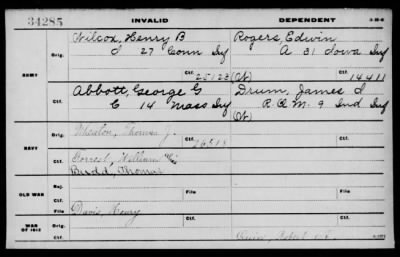 34285 INVALID DEPENDENT
ARMY
Orig. Wilcox, Henry B Rogers, Edwin
I 27 Conn Inf A 31 Iowa Inf
Ctf. 25123 (Ct) Ctf. 14411
Ctf. Abbott, George G Drum, James I
C 14 Mass Inf R.Q.M. 9 Ind Inf
(Ct)
NAVY
Orig. Whealon, Thomas J.
Ctf. 26518
Ctf. Forrest, William
Budd, Thomas
OLD WAR
Rej. File
Ctf. File
Davis, Henry
WAR OF 1812
Orig. Ctf.
Ctf. Robert